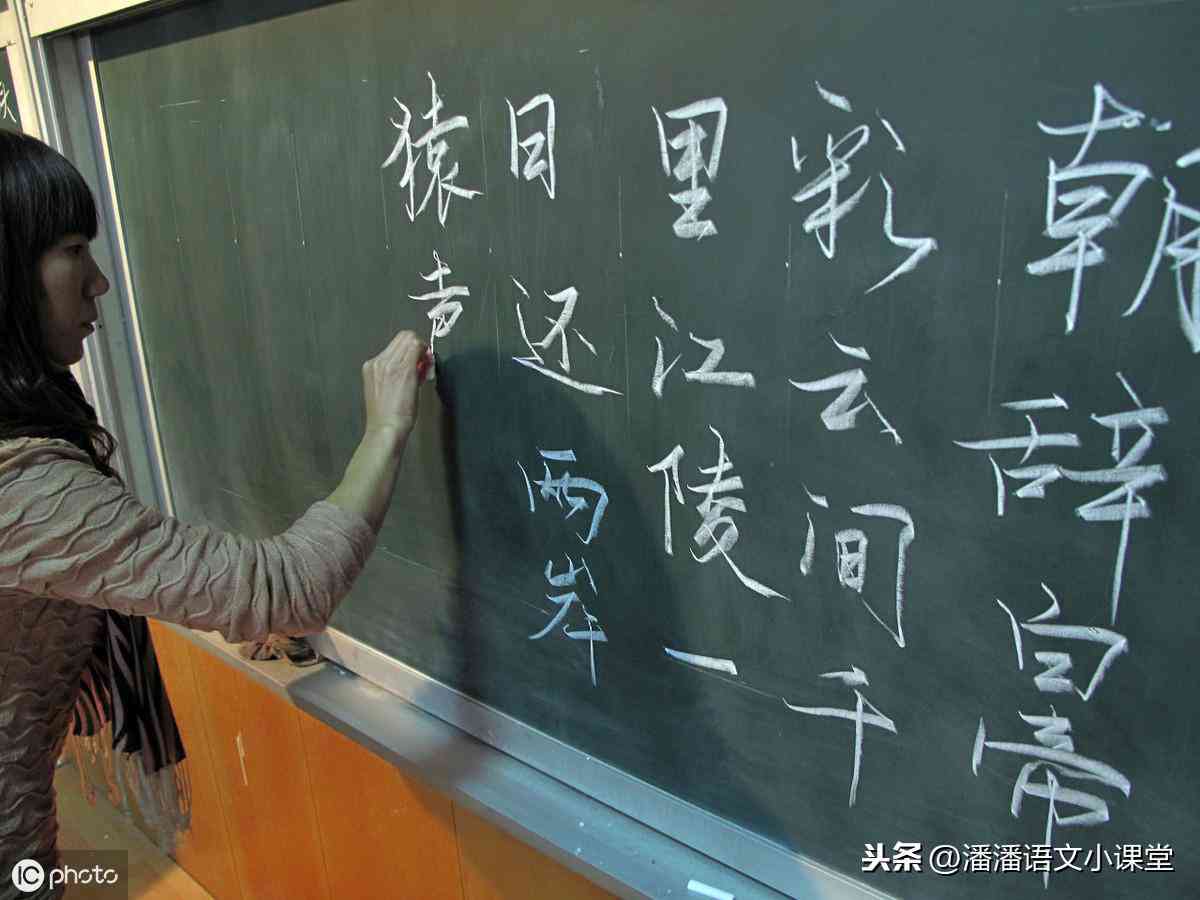 朝辞白帝
彩云间千
里江陵一
日还两岸
猿声
IC photo
头条 @潘潘语文小课堂